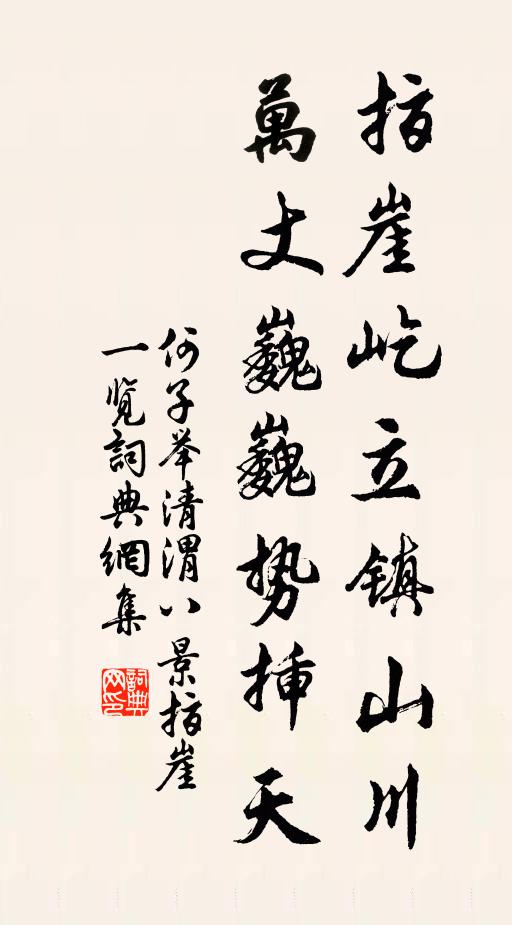 指崖屹立镇山川
萬丈巍巍势插天
何子举清渭八景指崖
一览詞典網集
詞典
网印